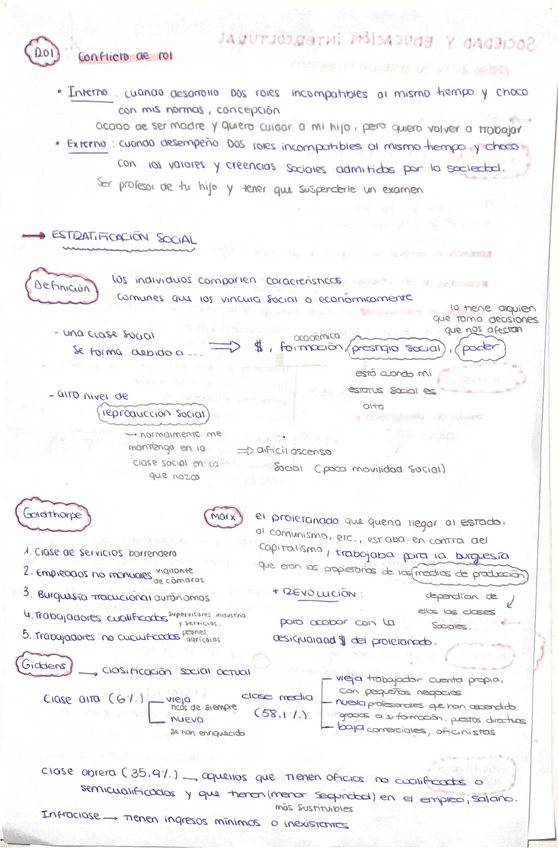 Rol Conflicto de rol
• Interno: cuando desarrollo dos roles incompatibles al mismo tiempo y choco
con mis normas, concepción
acabo de ser madre y quiero cuidar a mi hijo, pero quiero volver a trabajar
• Externo: cuando desempeño dos roles incompatibles al mismo tiempo y choco
con los valores y creencias sociales admitidos por la sociedad.
Ser profesor de tu hijo y tener que suspenderle un examen
→ ESTRATIFICACIÓN SOCIAL
Definición
los individuos comparten características
comunes que los vincula social o económicamente
- una clase social
se forma debido a ...
⇒ $, formación, prestigio social, poder
académica
lo tiene alguien
que toma decisiones
que nos afectan
está cuando mi
estatus social es
alto
- alto nivel de
reproducción social
→ normalmente me
mantengo en la
clase social en la
que nazco
⇒ difícil ascenso
social (poca movilidad social)
Goldthorpe
1. Clase de servicios barrendero
2. Empleados no manuales vigilante
de cámaras
3. Burguesía tradicional autónomos
4. Trabajadores cualificados supervisores industria
y servicios.
5. Trabajadores no cualificados peones
agrícolas
Marx
el proletariado que quería llegar al estado,
al comunismo, etc., estaba en contra del
capitalismo, trabajaba para la burguesía
que eran los propietarios de los medios de producción
+ REVOLUCIÓN:
para acabar con la
desigualdad $ del proletariado.
dependían de
ellos las clases
sociales.
Giddens → clasificación social actual
Clase alta (6%)
vieja
ricos de siempre
nueva
se han enriquecido
clase media
(58.1%)
vieja trabajador cuenta propia,
con pequeños negocios
nueva profesionales que han ascendido
gracias a su formación, puestos directivos
baja comerciales, oficinistas
Clase obrera (35,9%) → aquellos que tienen oficios no cualificados o
semicualificados y que tienen (menor seguridad) en el empleo, salario.
más sustituibles
Infraclase → tienen ingresos mínimos o inexistentes